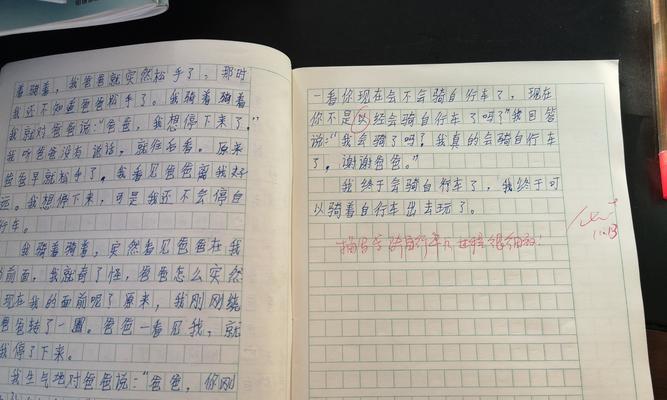 着骑着，我爸爸就突然松手了，那时
我还不知道爸爸松手了。我骑着骑着
我就对爸爸说：“爸爸，我想停下来了。”
我听爸爸没有说话，就往后看。原来
爸爸早就松手了。我看见爸爸离我好
远。我想停下来，可是我还不会停自
行车。
我骑着骑着，突然看见爸爸在我
的前面，我就奇了怪，爸爸怎么突然
现在我的面前呢？原来，我刚刚绕
着爸转了一圈。爸爸一看见我，就
我停了下来。
我生气地对爸爸说：“爸爸，你刚
一看你现在会不会骑自行车了，现在
你不是以经会骑自行车了吗？”我回答
说：“我会骑了吗？我真的会骑自行车
了，谢谢爸爸。”
我终于会骑自行车了，我终于可
以骑着自行车出去玩了。
描写学骑自行车的过程很细致！
11.13